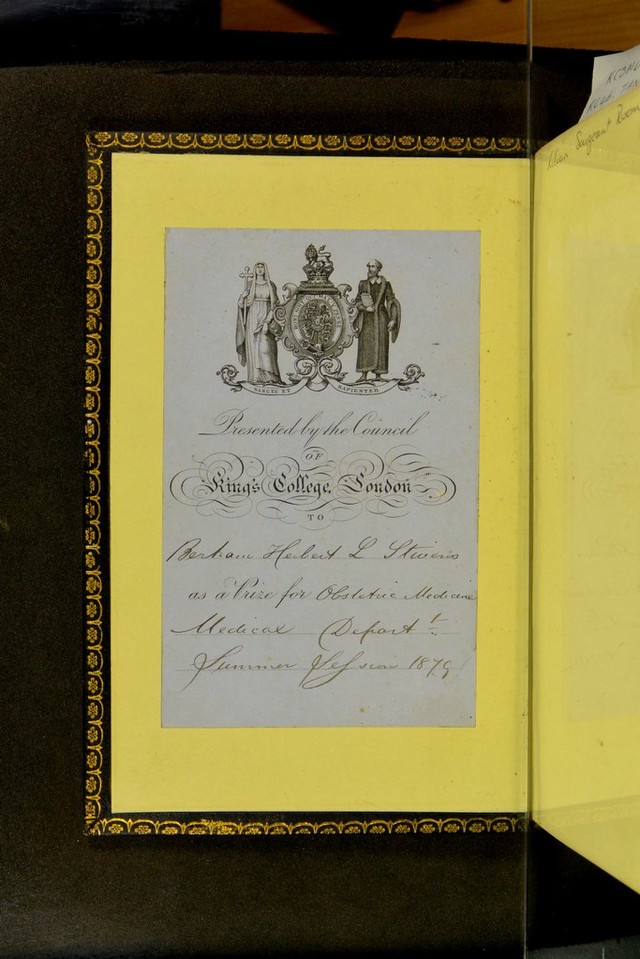 SANCTE ET SAPIENTER
Presented by the Council
OF
King's College, London
TO
Bertram Herbert L Stivens
as a Prize for Obstetric Medicine
Medical Depart t.
Summer Session 1879
Sargeant Room